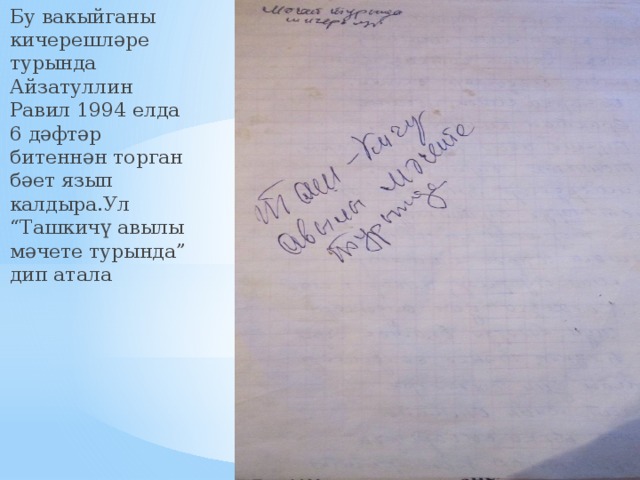 Бу вакыйганы
кичерешләре
турында
Айзатуллин
Равил 1994 елда
6 дәфтәр
битеннән торган
бәет язып
калдыра.Ул
“Ташкичү авылы
мәчете турында”
дип атала
турында
авылы мәчете
турында